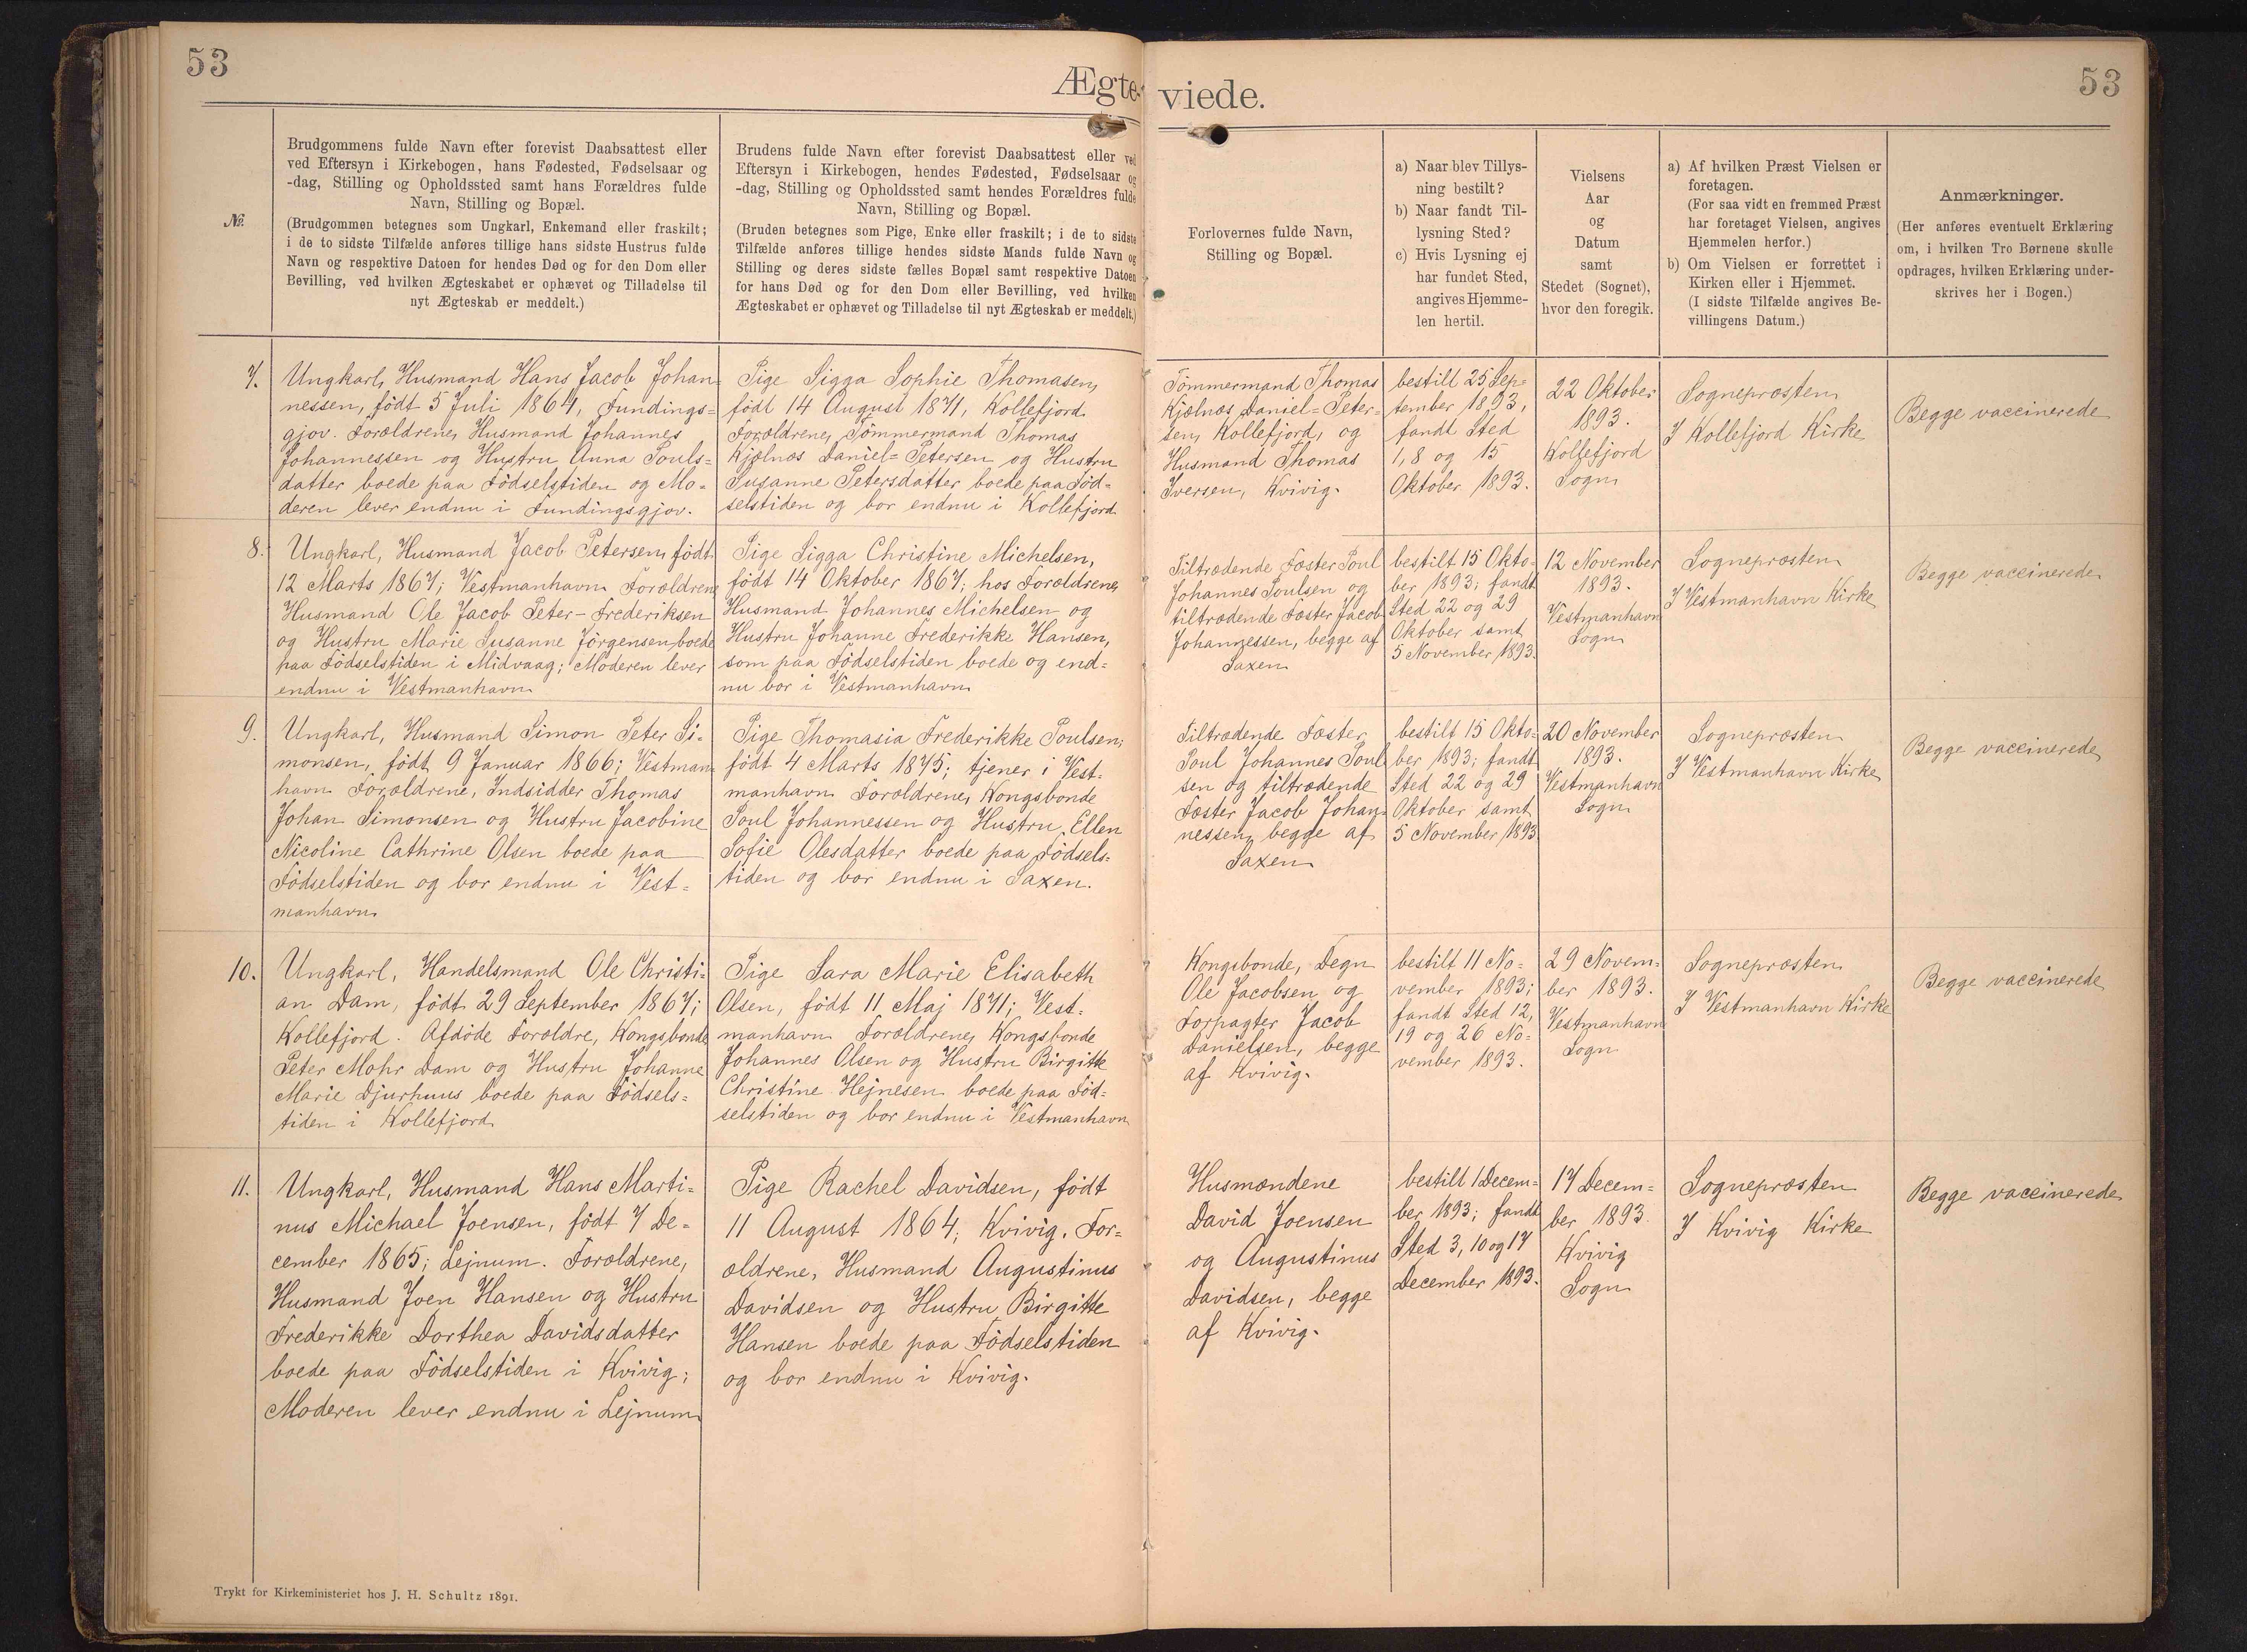 53
Ægte-
№.
Brudgommens fulde Navn efter forevist Daabsattest eller
ved Eftersyn i Kirkebogen, hans Fødested, Fødselsaar og
-dag, Stilling og Opholdssted samt hans Forældres fulde
Navn, Stilling og Bopæl.
(Brudgommen betegnes som Ungkarl, Enkemand eller fraskilt;
i de to sidste Tilfælde anføres tillige hans sidste Hustrus fulde
Navn og respektive Datoen for hendes Død og for den Dom eller
Bevilling, ved hvilken Ægteskabet er ophævet og Tilladelse til
nyt Ægteskab er meddelt.)
Brudens fulde Navn efter forevist Daabsattest eller ved
Eftersyn i Kirkebogen, hendes Fødested, Fødselsaar og
-dag, Stilling og Opholdssted samt hendes Forældres fulde
Navn, Stilling og Bopæl.
(Bruden betegnes som Pige, Enke eller fraskilt; i de to sidste
Tilfælde anføres tillige hendes sidste Mands fulde Navn og
Stilling og deres sidste fælles Bopæl samt respektive Datoen
for hans Død og for den Dom eller Bevilling, ved hvilken
Ægteskabet er ophævet og Tilladelse til nyt Ægteskab er meddelt.)
7.
Ungkarl, Husmand Hans Jacob Johan=
nessen, födt 5 Juli 1864, Fundings=
gjov. Forældrene, Husmand Johannes
Johannessen og Hustru Anna Pouls=
datter boede paa Födselstiden og Mo=
deren lever endnu i Fundingsgjov.
Pige Sigga Sophie Thomasen,
födt 14 August 1871, Kollefjord.
Forældrene, Tömmermand Thomas
Kjølnæs Daniel=Petersen og Hustru
Susanne Petersdatter boede paa Föd=
selstiden og bor endnu i Kollefjord.
8.
Ungkarl, Husmand Jacob Petersen, födt
12 Marts 1867; Vestmanhavn. Forældrene
Husmand Ole Jacob Peter-Frederiksen
og Hustru Marie Susanne Jörgensen boede
paa Födselstiden i Midvaag; Moderen lever
endnu i Vestmanhavn.
Pige Sigga Christine Michelsen,
födt 14 Oktober 1867; hos Forældrene,
Husmand Johannes Michelsen og
Hustru Johanne Frederikke Hansen,
som paa Födselstiden boede og end=
nu bor i Vestmanhavn.
9.
Ungkarl, Husmand Simon Peter Si=
monsen, födt 9 Januar 1866; Vestman=
havn. Forældrene, Indsidder Thomas
Johan Simonsen og Hustru Jacobine
Nicoline Cathrine Olsen boede paa
Födselstiden og bor endnu i Vest=
manhavn.
Pige Thomasia Frederikke Poulsen;
födt 4 Marts 1875; tjener i Vest=
manhavn. Forældrene, Kongsbonde
Poul Johannessen og Hustru Ellen
Sofie Olesdatter boede paa Födsels=
tiden og bor endnu i Saxen.
10.
Ungkarl, Handelsmand Ole Christi=
an Dam, födt 29 September 1867;
Kollefjord. Afdöde Forældre, Kongsbonde
Peter Mohr Dam og Hustru Johanne
Marie Djurhuus boede paa Födsels=
tiden i Kollefjord.
Pige Sara Marie Elisabeth
Olsen, födt 11 Maj 1871; Vest=
manhavn. Forældrene, Kongsbonde
Johannes Olsen og Hustru Birgitte
Christine Hejnesen boede paa Föd=
selstiden og bor endnu i Vestmanhavn.
11.
Ungkarl, Husmand Hans Marti=
nus Michael Joensen, födt 7 De=
cember 1865; Lejnum. Forældrene,
Husmand Joen Hansen og Hustru
Frederikke Dorthea Davidsdatter
boede paa Födselstiden i Kvivig;
Moderen lever endnu i Lejnum.
Pige Rachel Davidsen, födt
11 August 1864; Kvivig. For=
ældrene, Husmand Augustinus
Davidsen og Hustru Birgitte
Hansen boede paa Födselstiden
og bor endnu i Kvivig.
Trykt for Kirkeministeriet hos J. H. Schultz 1891.
viede.
53
Forlovernes fulde Navn,
Stilling og Bopæl.
a) Naar blev Tillys-
ning bestilt?
b) Naar fandt Til-
lysning Sted?
c) Hvis Lysning ej
har fundet Sted,
angives Hjemme-
len hertil.
Vielsens
Aar
og
Datum
samt
Stedet (Sognet),
hvor den foregik.
a) Af hvilken Præst Vielsen er
foretagen.
(For saa vidt en fremmed Præst
har foretaget Vielsen, angives
Hjemmelen herfor.)
b) Om Vielsen er forrettet i
Kirken eller i Hjemmet.
(I sidste Tilfælde angives Be-
villingens Datum.)
Anmærkninger.
(Her anføres eventuelt Erklæring
om, i hvilken Tro Børnene skulle
opdrages, hvilken Erklæring under-
skrives her i Bogen.)
Tömmermand Thomas
Kjølnæs Daniel=Peter=
sen, Kollefjord, og
Husmand Thomas
Iversen, Kvivig.
bestilt 25 Sep=
tember 1893,
fandt Sted
1, 8 og 15
Oktober 1893.
22 Oktober
1893.
Kollefjord
Sogn
Sognepræsten
I Kollefjord Kirke
Begge vaccinerede
Tiltrædende Fæster Poul
Johannes Poulsen og
tiltrædende Fæster Jacob
Johannessen, begge af
Saxen
bestilt 15 Okto=
ber 1893; fandt
Sted 22 og 29
Oktober samt
5 November 1893.
12 November
1893.
Vestmanhavn
Sogn
Sognepræsten
I Vestmanhavn Kirke
Begge vaccinerede
Tiltrædende Fæster
Poul Johannes Poul
sen og tiltrædende
Fæster Jacob Johan=
nessen, begge af
Saxen
bestilt 15 Okto=
ber 1893; fandt
Sted 22 og 29
Oktober samt
5 November 1893
20 November
1893.
Vestmanhavn
Sogn
Sognepræsten
I Vestmanhavn Kirke
Begge vaccinerede
Kongsbonde, Degn
Ole Jacobsen og
Forpagter Jacob
Danielsen, begge
af Kvivig.
bestilt 11 No=
vember 1893;
fandt Sted 12,
19 og 26 No=
vember 1893.
29 Novem=
ber 1893.
Vestmanhavn
Sogn
Sognepræsten
I Vestmanhavn Kirke
Begge vaccinerede
Husmændene
David Joensen
og Augustinus
Davidsen, begge
af Kvivig.
bestilt 1 Decem=
ber 1893; fandt
Sted 3, 10 og 17
December 1893.
17 Decem=
ber 1893.
Kvivig
Sogn
Sognepræsten
I Kvivig Kirke
Begge vaccinerede